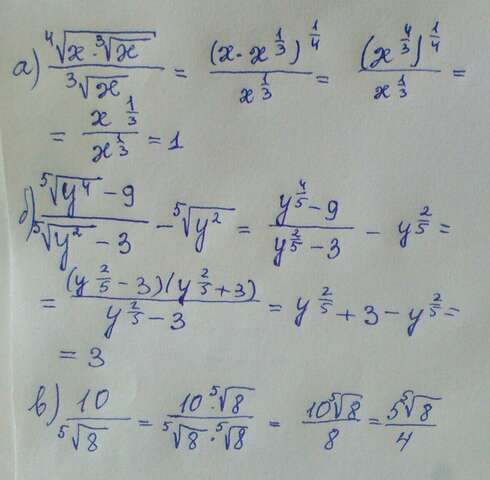 а) ⁴√(x·³√x) / ³√x = (x·x^(1/3))^(1/4) / x^(1/3) = (x^(4/3))^(1/4) / x^(1/3) =
= x^(1/3) / x^(1/3) = 1
б) (⁵√(y⁴) - 9) / (⁵√(y²) - 3) - ⁵√(y²) = (y^(4/5) - 9) / (y^(2/5) - 3) - y^(2/5) =
= (y^(2/5) - 3)(y^(2/5) + 3) / (y^(2/5) - 3) = y^(2/5) + 3 - y^(2/5) =
= 3
в) 10 / ⁵√8 = 10·⁵√8 / (⁵√8·⁵√8) = 10⁵√8 / 8 = 5⁵√8 / 4